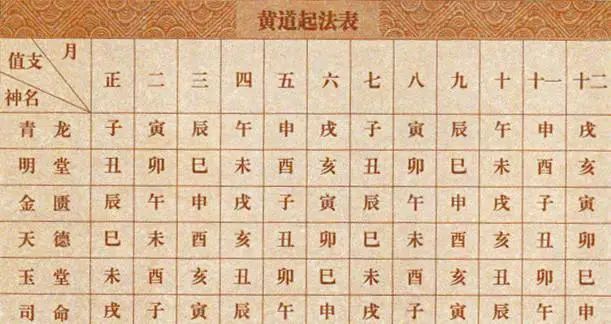 黄道起法表
月
值支
神名
正 二 三 四 五 六 七 八 九 十 十一 十二
青龙 子 寅 辰 午 申 戌 子 寅 辰 午 申 戌
明堂 丑 卯 巳 未 酉 亥 丑 卯 巳 未 酉 亥
金匮 辰 午 申 戌 子 寅 辰 午 申 戌 子 寅
天德 巳 未 酉 亥 丑 卯 巳 未 酉 亥 丑 卯
玉堂 未 酉 亥 丑 卯 巳 未 酉 亥 丑 卯 巳
司命 戌 子 寅 辰 午 申 戌 子 寅 辰 午 申